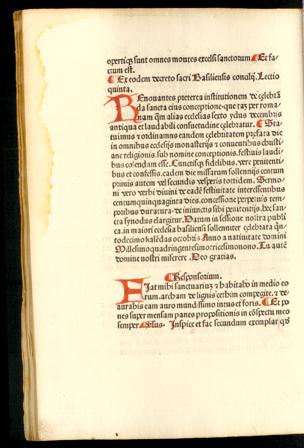 opertiqȝ sunt omnes montes excelsi sanctorum ¶ Et fa-
ctum est.
¶ Ex eodem decreto sacri Basiliensis concilij. Lectio
quinta.
REnouantes preterea institutionem de celebrā
da sancta eius conceptione que tam per roma
nam q̃m alias ecclesias sexto ydus decembris
antiqua et laudabili consuetudine celebratur. ¶ Sta
tuimus ⁊ ordinamus eandem celebritatem prefata die
in omnibus ecclesijs monasterijs ⁊ conuentibus christi
ane religionis. sub nomine conceptionis. festiuis laudi
bus colendam esse. Cunctisqȝ fidelibus. vere penitenti
bus et confessis. eadem die missarum sollennijs centum
primis autem vel secundis vesperis totidem. Sermo
ni vero verbi diuini de eadē festiuitate interessentibus
centum quinquaginta dies. concessione perpetuis tem
poribus duratura. de iniunctis sibi penitentijs. hec san
cta synodus elargitur. Datum in sessione nostra publi
ca. in maiori ecclesia basiliensi sollenniter celebrata q̄n
todecimo kalēdas octobris Anno a natiuitate domini
Millesimoquadringentesimotricesimonono. Tu autē
domine nostri miserere. Deo gratias.
¶ Responsorium.
FIat mihi sanctuariuȝ ⁊ habitabo in medio eo
rum. archam de lignis cethim compegite. ⁊ de
aurabis eam auro mundissimo intus et foris. ¶ Et po
nes super mensam panes propositionis in cōspectu meo
semper ¶ Inspice et fac secundum exemplar qd̄